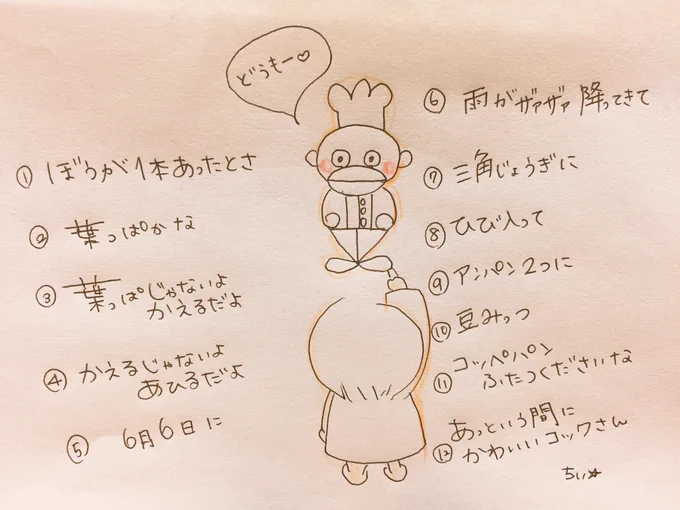 どうもー♡
① ぼうが1本あったとさ
② 葉っぱかな
③ 葉っぱじゃないよ
かえるだよ
④ かえるじゃないよ
あひるだよ
⑤ 6月6日に
⑥ 雨がザァザァ降ってきて
⑦ 三角じょうぎに
⑧ ひび入って
⑨ アンパン2つに
⑩ 豆みっつ
⑪ コッペパン
ふたつくださいな
あっという間に
⑫ かわいいコックさん
ちぃ☆